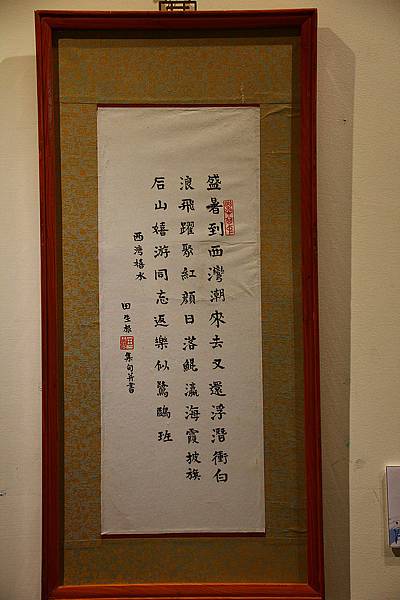 盛暑到西灣潮來去又還浮潛衝白
浪飛躍聚紅顏日落鯤瀛海霞披旗
后山嬉游同忘返樂似鷺鷗班
西灣嬉水
田生
集句并書